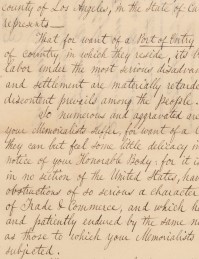 county of Los Angeles, in the State of Ca
represents—
That for want of a Port of Entry
of country in which they reside, its
Labor under the most serious disadvan
and settlement are materially retarde
discontent prevails among the people
So numerous and aggravated are
your Memorialists suffer, for want of a
they can but feel some little delicacy in
notice of your Honorable Body. for it is
in no section of the United States, have
obstructions of so serious a character
of Trade & Commerce, and which h
and patiently endured by the same n
as those to which your Memorialists
subjected.